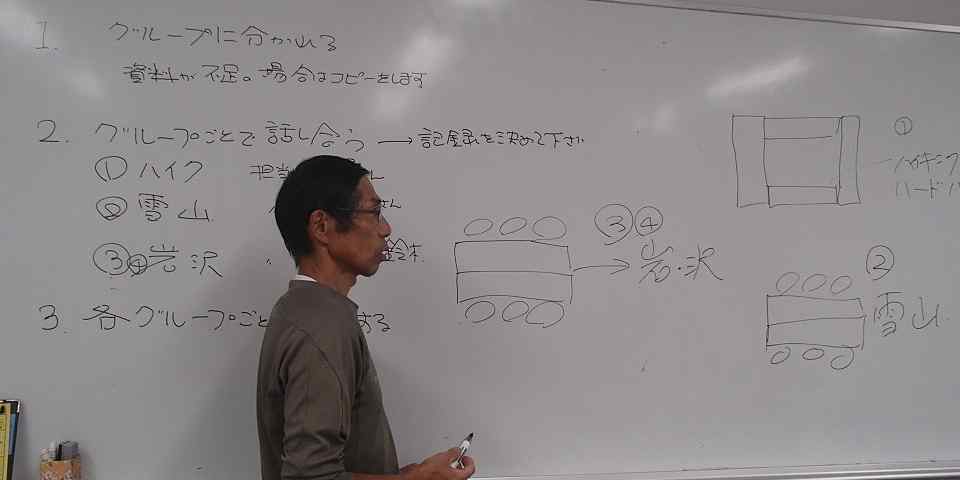 1. グループに分かれる
資料が不足。場合はコピーをします
2. グループごとで話し合う → 記録を決めて下さ
① ハイク 担当 ん
② 雪山 さん
③④岩沢 鈴木
3. 各グループごと する
③④
岩・沢
①
ハイキング
ハード
②
雪山